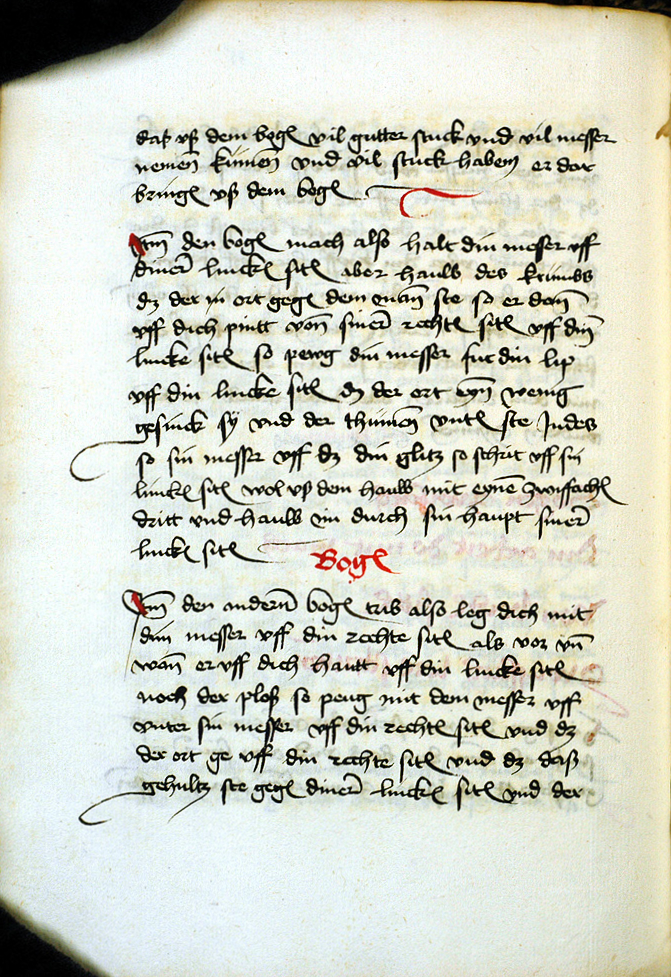 daß vß dem bogē vil gutter stuck vnd vil messer
nemen kinnen vnd vil stuck haben er dar
bringē vß dem bogē
den bogē mach also halt din messer vff
diner linckē sitē aber hauw des krumss
dz der im ort gegē dem man ste so er dan
vff dich pintt von siner rechtē sitē vff din
lincke sitē so peug din messer fur din lip
vff din lincke sitē dz der ort eyn wenig
gesinck sy vnd der thümen vntē ste Indes
so sin messer vff dz din glitz so schrit vff sin
linckē sitē wol vß dem hauw mit eynē zwiffachē
dritt vnd hauw im durch sin haupt siner
linckē sitē
Bogē
den andern bogē trib also leg dich mit
dim messer vff din rechte sitē als vor vn
wan er vff dich hautt vff din lincke sitē
noch der ploß so peug mit dem messer vff
vnter sin messer vff din rechtē sitē vnd dz
der ort ge vff din rechte sitē vnd dz daß
gehultz ste gegē diner linckē sitē vnd der